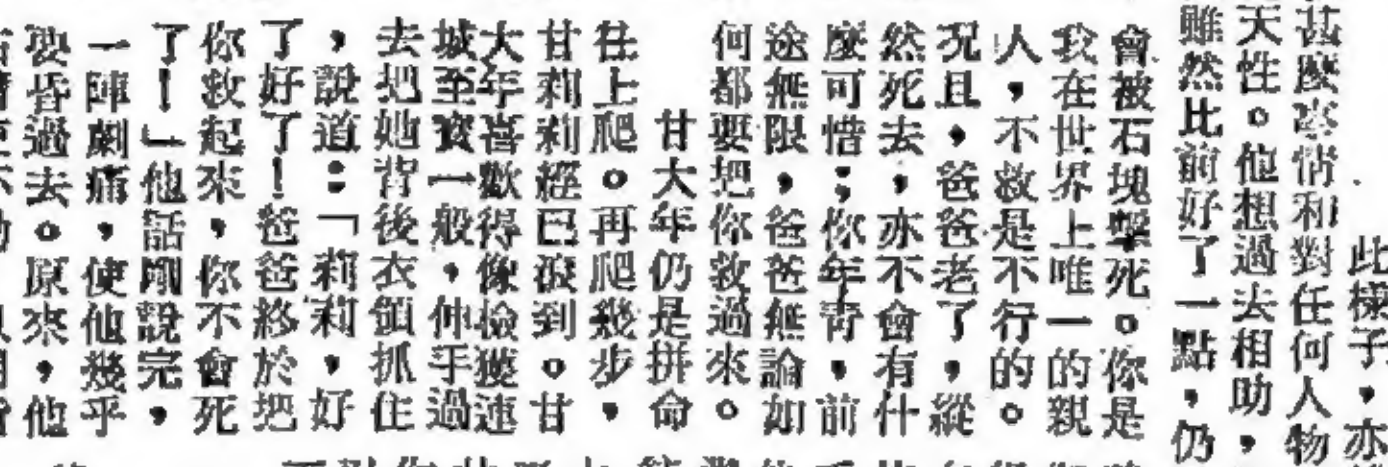 此樣子，亦
甚麼事情和對任何人物
天性。他想過去相助，
雖然比前好了一點，仍
會被石塊擊死。你是
我在世界上唯一的親
人，不救是不行的。
況且，爸爸老了，縱
然死去，亦不會有什
麼可惜；你年青，前
途無限，爸爸無論如
何都要把你救過來。
甘大年仍是拼命
往上爬。再爬幾步，
甘莉莉經已滾到。甘
大年喜歡得像檢獲連
城至寶一般，伸手過
去把她背後衣領抓住
，說道：「莉莉，好
了好了！爸爸終於把
你救起來，你不會死
了！」他話剛說完，
一陣劇痛，使他幾乎
要昏過去。原來，他